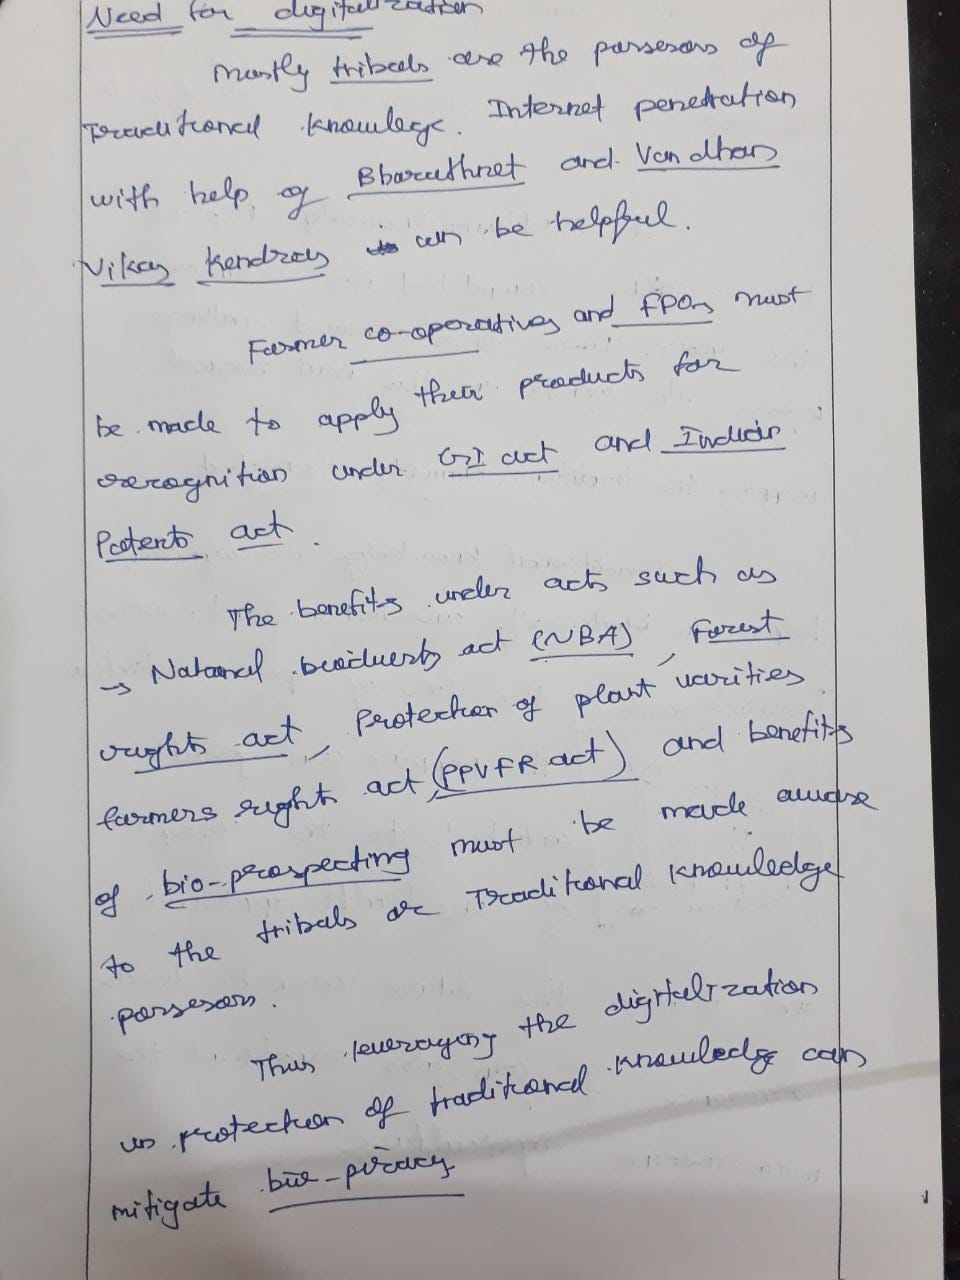 Need for digitalization
Mostly tribals are the possesors of
Traditional knowlege. Internet penetration
with help of Bharathnet and Van dhan
Vikas Kendras can be helpful.
Farmer co-operatives and FPOs must
be made to apply their products for
recognition under GI act and Indian
Patents act.
The benefits under acts such as
→ National biodiversity act (NBA), Forest
rights act, Protection of plant varities
farmers right act, (PPVFR act) and benefits
of bio-prospecting must be made aware
to the tribals or Traditional knowledge
possesors.
Thus leveraging the digitalization
in protection of traditional knowledge can
mitigate bio-piracy